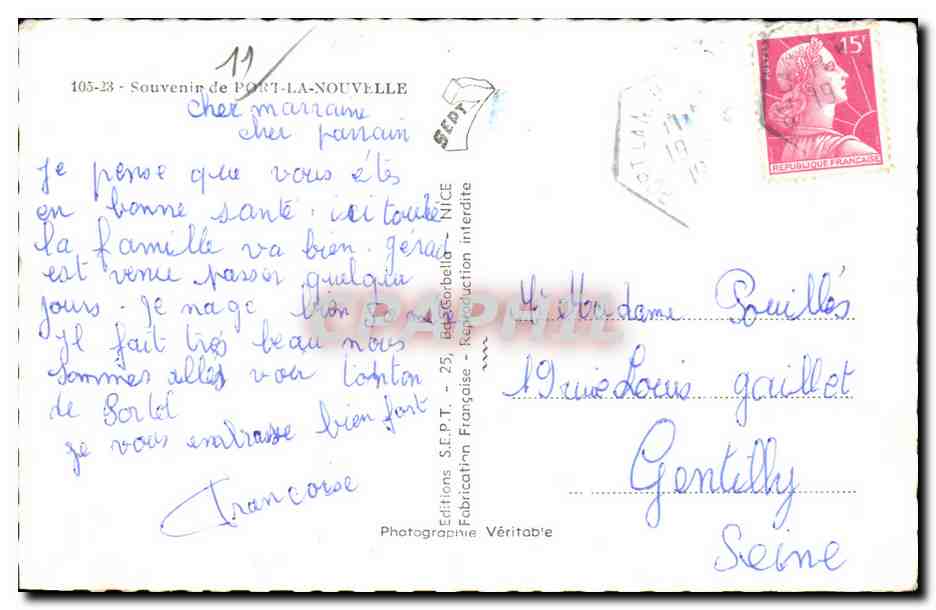 11
105-23 - Souvenir de PORT-LA-NOUVELLE
cher marraine
cher parrain
Je pense que vous êtes
en bonne santé. ici toute
la famille va bien. gérad
est venue passer quelque
jours. Je nage bien
Il fait très beau nous
sommes allés voir tonton
de Portel
je vous embrasse bien fort
Francoise
SEPT
Editions S.E.P.T. - 25, Bd Gorbella - NICE
Fabrication Française - Reproduction interdite
Photographie Véritable
CPAPHIL
POSTES
15F
REPUBLIQUE FRANÇAISE
Mr Madame Pouillès
19 rue Louis gaillet
Gentilly
Seine